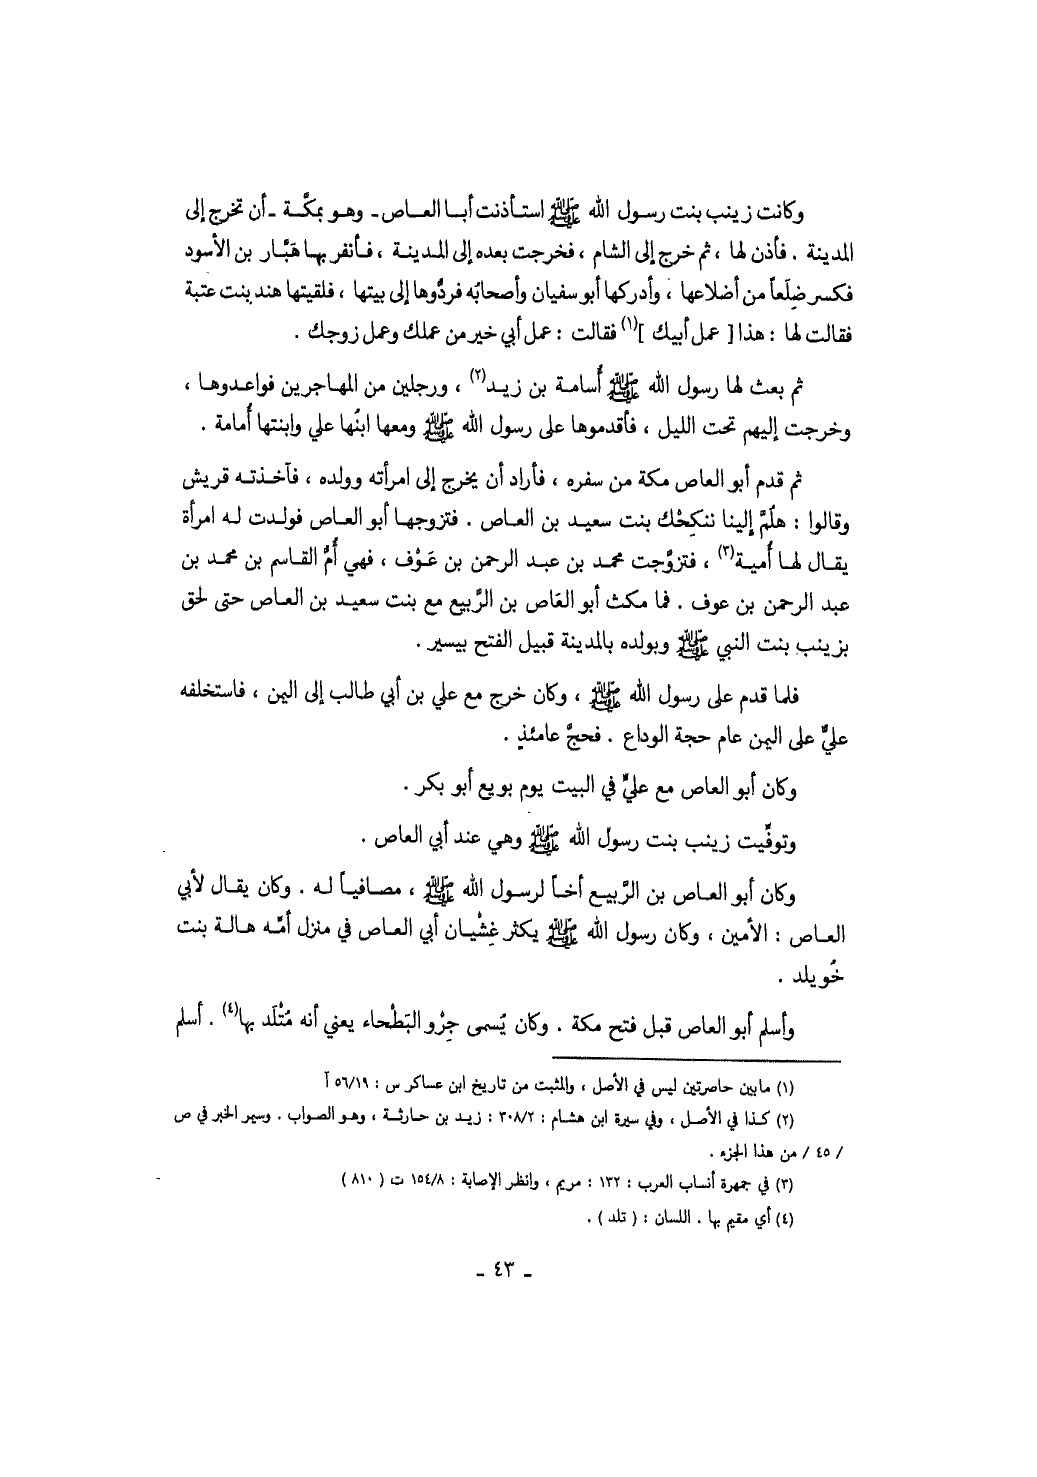 وكانت زينب بنت رسول الله ﷺ استأذنت أبا العاص ـ وهو بمكَّة ـ أن تخرج إلى
المدينة . فأذن لها ، ثم خرج إلى الشام ، فخرجت بعده إلى المدينة ، فأنفر بها هَبَّار بن الأسود
فكسر ضِلَعاً من أضلاعها ، وأدركها أبو سفيان وأصحابُه فردُّوها إلى بيتها ، فلقيتها هند بنت عتبة
فقالت لها : هذا [ عمل أبيك ](١) فقالت : عمل أبي خير من عملك وعمل زوجك .
ثم بعث لها رسول الله ﷺ أُسامة بن زيد(٢) ، ورجلين من المهاجرين فواعدوها ،
وخرجت إليهم تحت الليل ، فأقدموها على رسول الله ﷺ ومعها ابنُها علي وابنتها أُمامة .
ثم قدم أبو العاص مكة من سفره ، فأراد أن يخرج إلى امرأته وولده ، فآخذته قريش
وقالوا : هلُمَّ إلينا ننكِحْك بنت سعيد بن العاص . فتزوجها أبو العاص فولدت له امرأة
يقال لها أُمية(٣) ، فتزوَّجت محمد بن عبد الرحمن بن عَوْف ، فهي أُمُّ القاسم بن محمد بن
عبد الرحمن بن عوف . فما مكث أبو العَاص بن الرَّبيع مع بنت سعيد بن العاص حتى لحق
بزينب بنت النبي ﷺ وبولده بالمدينة قبيل الفتح بيسير .
فلما قدم على رسول الله ﷺ ، وكان خرج مع علي بن أبي طالب إلى اليمن ، فاستخلفه
عليٌّ على اليمن عام حجة الوداع . فحجَّ عامئذٍ .
وكان أبو العاص مع عليٍّ في البيت يوم بويع أبو بكر .
وتوفِّيت زينب بنت رسول الله ﷺ وهي عند أبي العاص .
وكان أبو العاص بن الرَّبيع أخاً لرسول الله ﷺ ، مصافياً له . وكان يقال لأبي
العاص : الأمين ، وكان رسول الله ﷺ يكثر غِشْيان أبي العاص في منزل أمِّه هالة بنت
خُويلد .
وأسلم أبو العاص قبل فتح مكة . وكان يُسمى جِرْو البَطْحاء يعني أنه مُتْلَد بها(٤) . أسلم
(١) مابين حاصرتين ليس في الأصل ، والمثبت من تاريخ ابن عساكر س : ٥٦/١٩ آ
(٢) كذا في الأصل ، وفي سيرة ابن هشام : ٣٠٨/٢ : زيد بن حارثة ، وهو الصواب . وسير الخبر في ص
/ ٤٥ / من هذا الجزء .
(٣) في جمهرة أنساب العرب : ١٣٢ : مريم ، وانظر الإصابة : ١٥٤/٨ ت ( ٨١٠ )
(٤) أي مقيم بها . اللسان : ( تلد ) .
ـ ٤٣ ـ